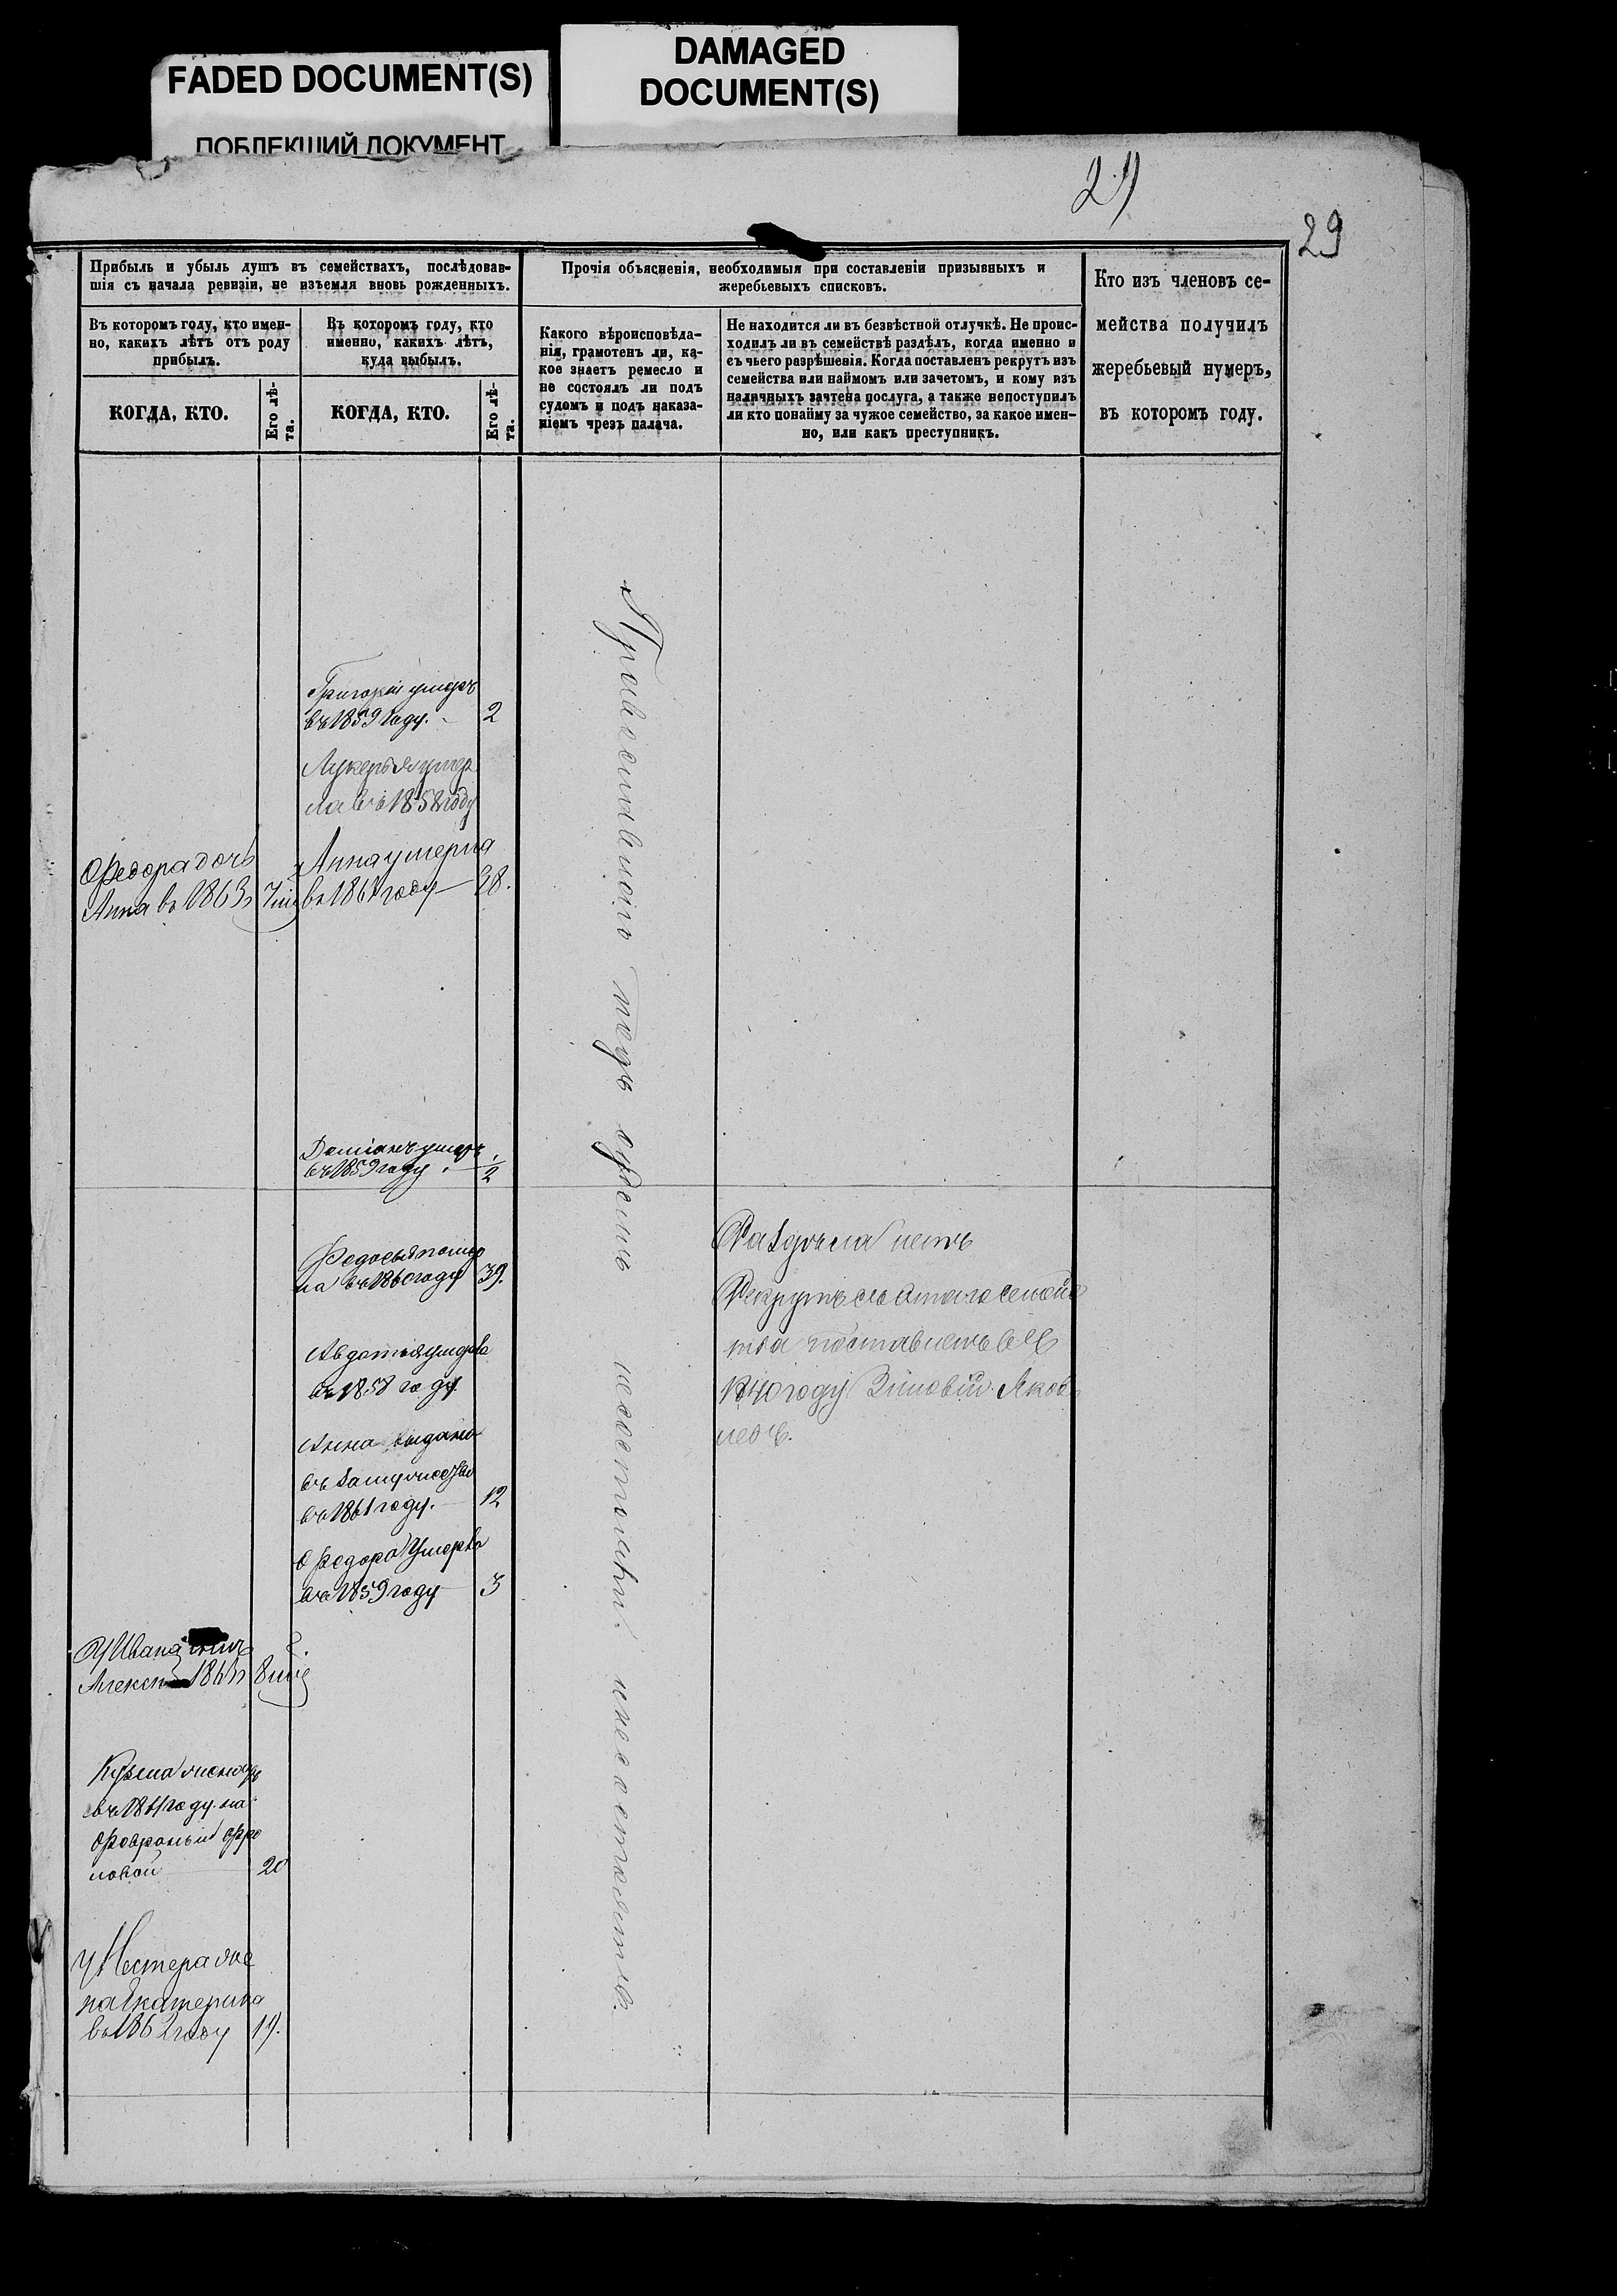 FADED DOCUMENT(S)
ПОБЛЕКШИЙ ДОКУМЕНТ
DAMAGED
DOCUMENT(S)
29
Прибыль и убыль душъ въ семействахъ, послѣдовав-
шія съ начала ревизіи, не изъемля вновь рожденныхъ.
Въ которомъ году, кто имен-
но, какихъ лѣтъ отъ роду
прибылъ.
КОГДА, КТО.
Его лѣ-
та.
Въ которомъ году, кто
именно, какихъ лѣтъ,
куда выбылъ.
КОГДА, КТО.
Его лѣ-
та.
Прочія объясненія, необходимыя при составленіи призывныхъ и
жеребьевыхъ списковъ.
Какого вѣроисповѣда-
нія, грамотенъ ли, ка-
кое знаетъ ремесло и
не состоялъ ли подъ
судомъ и подъ наказа-
ніемъ чрезъ палача.
Не находится ли въ безвѣстной отлучкѣ. Не проис-
ходилъ ли въ семействѣ раздѣлъ, когда именно и
съ чьего разрѣшенія. Когда поставленъ рекрутъ изъ
семейства или наймомъ или зачетомъ, и кому изъ
наличныхъ зачтена послуга, а также непоступилъ
ли кто понайму за чужое семейство, за какое имен-
но, или какъ преступникъ.
Кто изъ членовъ се-
мейства получилъ
жеребьевый нумеръ,
въ которомъ году.
Григорій умеръ
въ 1859 году. 2
Лукерья умер
ла въ 1858 году
Федора дочь
Анна въ 1863
Анна умерла
въ 1861 году 38.
Даміанъ умеръ
въ 1859 году. 1/2
Федосья помер
ла въ 1860 году 39.
Авдотья умерла
въ 1858 году
Анна выдана
въ замужество
въ 1861 году. 12
Федора умерла
въ 1859 году 3
У Ивана сынъ
Алексей
Кузьма женатъ
въ 1861 году на
Февроньи Фро
ловой 20
У Нестера же
на Екатерина
въ 1862 году 19.
Православного подъ судомъ несостояли и несостоятъ.
Раздѣла нетъ
Рекрутъ съ етаго семейс
тва поставленъ въ
1840 году Зиновій Яков
левъ.